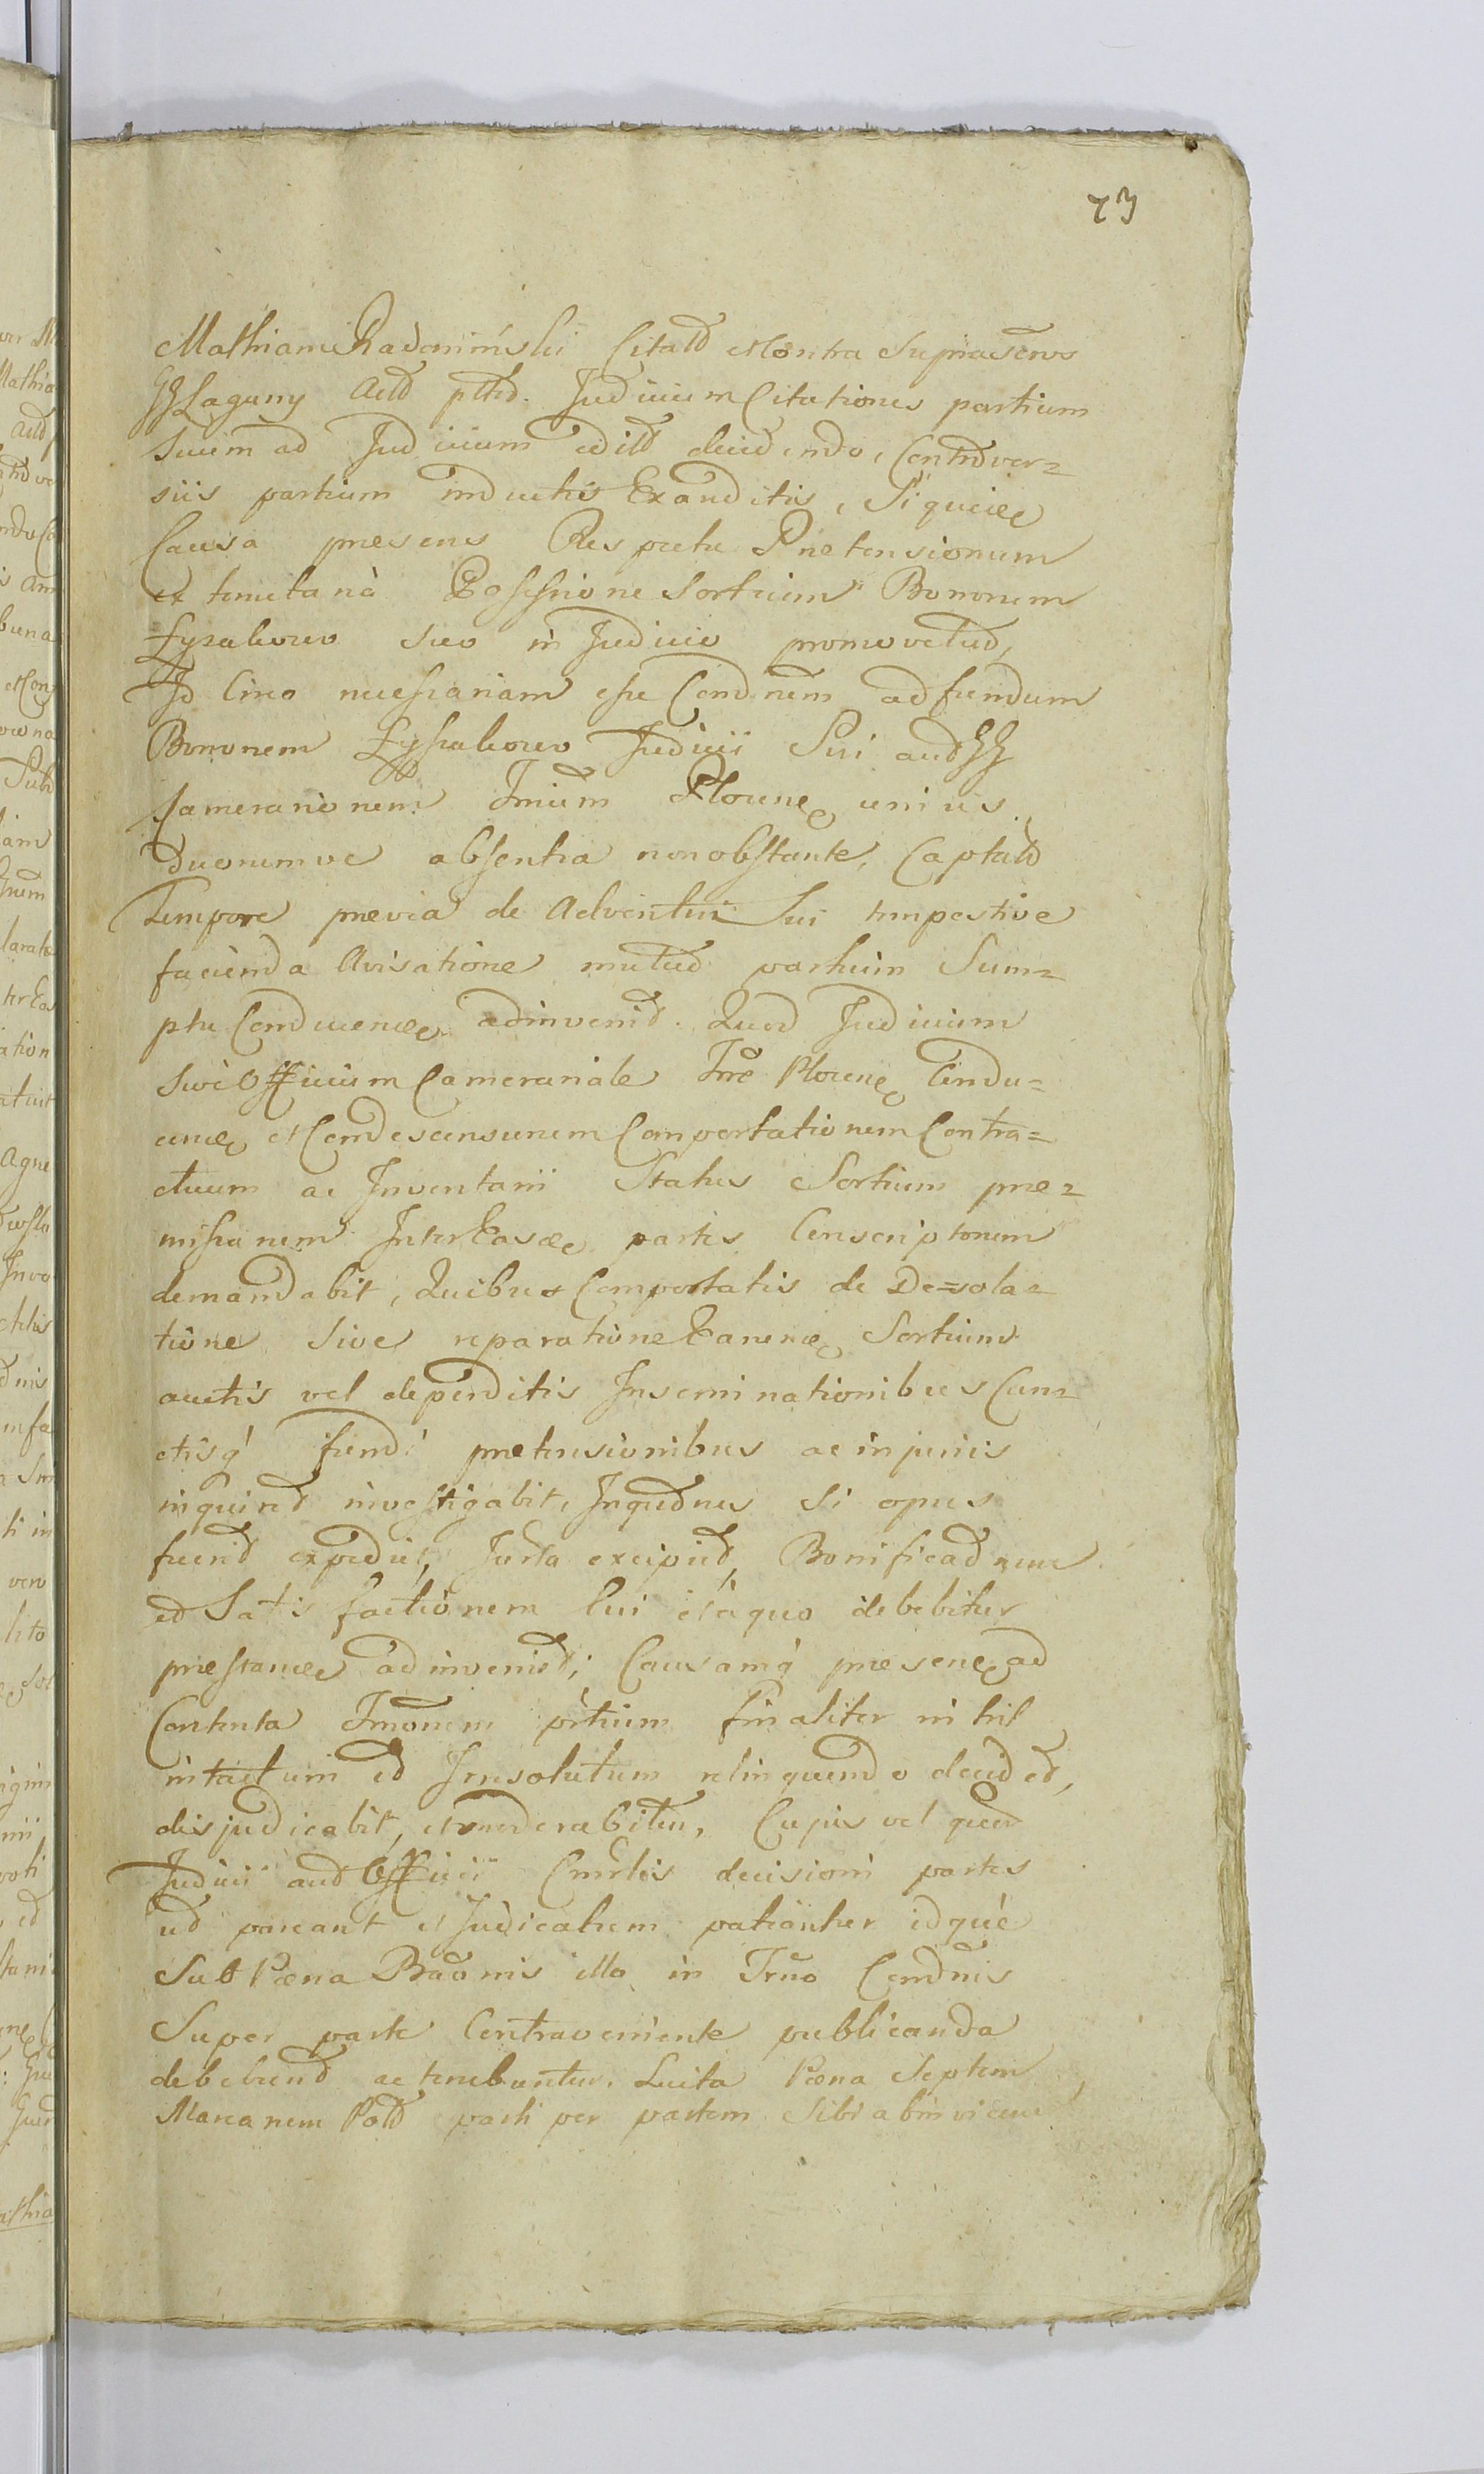 73
Mathiam Radoninski Citatô et Contra Suprascrīvs
GG Laguny Actô pttô. Judicium Citationes partium
Suum ad Judicium editô decidendo, Controver=
siis partium inductis Exauditis, Si quidē
Causa presens Respectu Pretensionum
ex temutaria Possessione Sortium Bonorum
Łysakowo suo in Judicio promovetur,
Id Circo necessariam esse Condnēm ad fundum
Bonorum Łysakowo Judicii Sui aut GG
Camerariorum Trium Plocnę unius
Duorumve absentia non obstante, Captatô
Tempore previa de Adventu Sui tempestive
facienda Avisatione mutuô partium Sum=
ptu Conducenę adinvenit. Quod Judicium
sive Officium Camerariale Trrē Plocnę Condu=
cenę et Condescensurum Comportationem Contra=
ctuum ac Inventarii Status Sortium pre=
missarum Inter Easdē partes Conscriptorum
demandabit, Quibus Comportatis de De=sola=
tione sive reparatione Earumę Sortium
auctis vel deperditis Inseminationibus Cun=
ctisq' fundi pretensionibus ac injuriis
inquiret investigabit, Inquōnes si opus
fuerit expediet, Jurta excipiet, Bonificaōnem
et Satisfactionem Cui et à quo debebitur
prestandē adinveniet; Causamq' presenę ad
Contenta Tmonem prtium finaliter nihil
intactum et Irresolutum relinquendo decidet,
disjudicabit, et moderabitur, Cujus vel quod
Judicii aut Officii Cmrlis decisioni partes
ut pareant et Judicatum patiantur idque
Sub Pœna Baōnis illo in Trno Condnis
Super parte Contraveniente publicanda
debebunt ac tenebuntur. Luita Pœna Septem
Marcarum Polô parti per partem sibi ab invicem